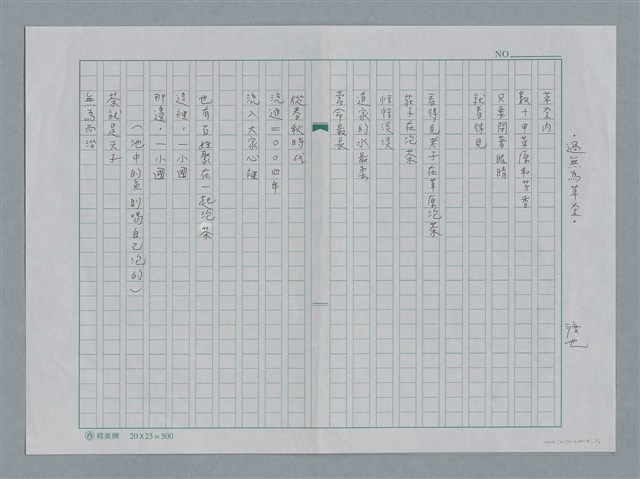 NO
·過無為草堂·
渡也
草堂內
數十甲草原和芳香
只要閉著眼睛
就看得見
看得見老子在草原泡茶
莊子在泡茶
恬恬淡淡
道家的水最柔
壽命最長
從春秋時代
流進二００四年
流入大家心裡
也有百姓聚在一起泡茶
這裡，一小國
那邊，一小國
（池中的魚則喝自己泡的）
茶就是天子
無為而治
稿美牌 20×25=500